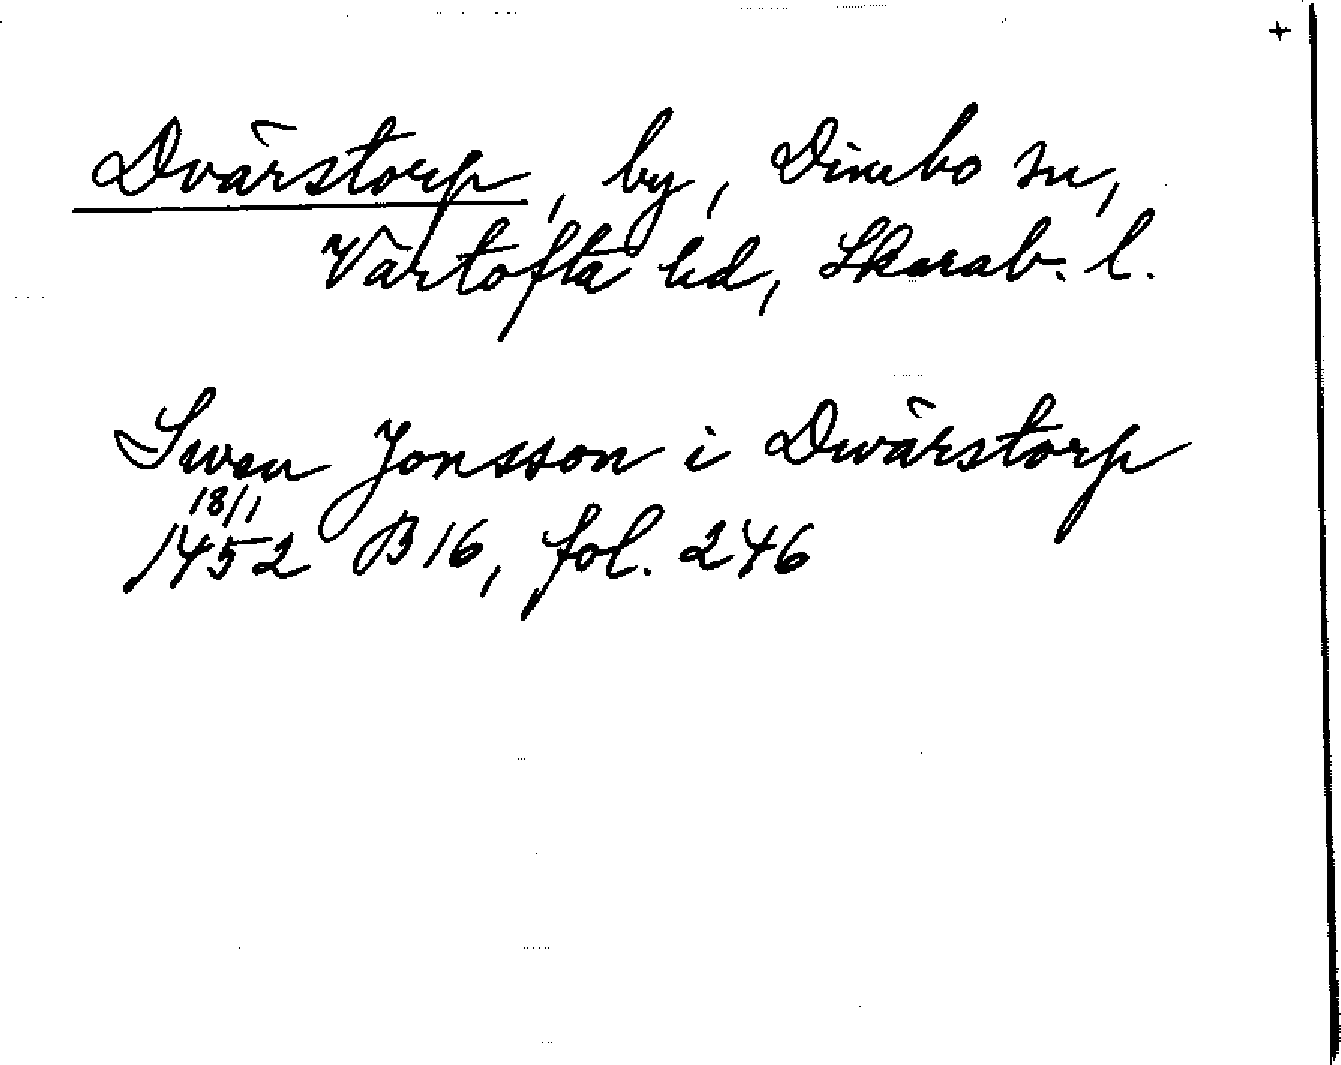 +
Dvärstorp, by, Dimbo sn,
Vartofta hd, Skarab. l.
Swen Jonsson i Dwärstorp
18/1
1452 B 16, fol. 246